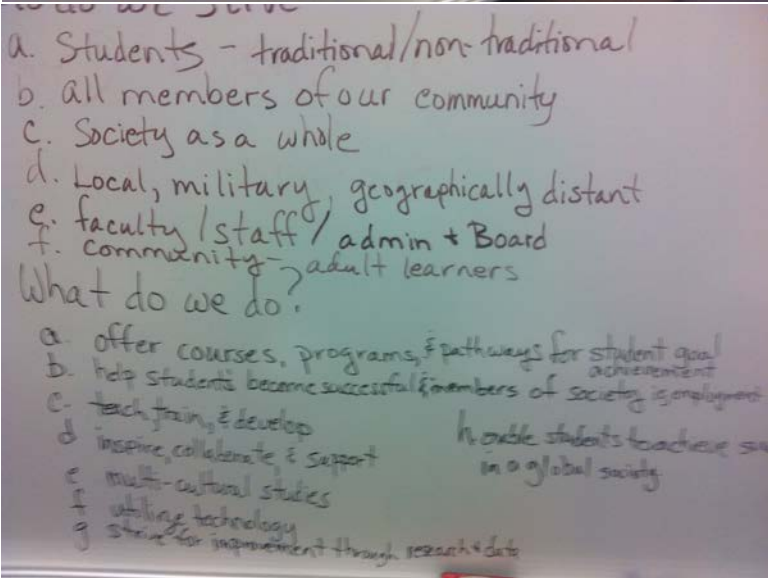 do we serve
a. Students - traditional/non-traditional
b. all members of our community
c. Society as a whole
d. Local, military, geographically distant
e. faculty/staff/admin + Board
f. community - adult learners
What do we do?
a. offer courses, programs, & pathways for student goal
achievement
b. help students become successful & members of society & employment
c. teach, train, & develop
d inspire, collaborate, & support
e multi-cultural studies
f utiling technology
g strive for improvement through research & data
h. enable students to achieve
in a global society